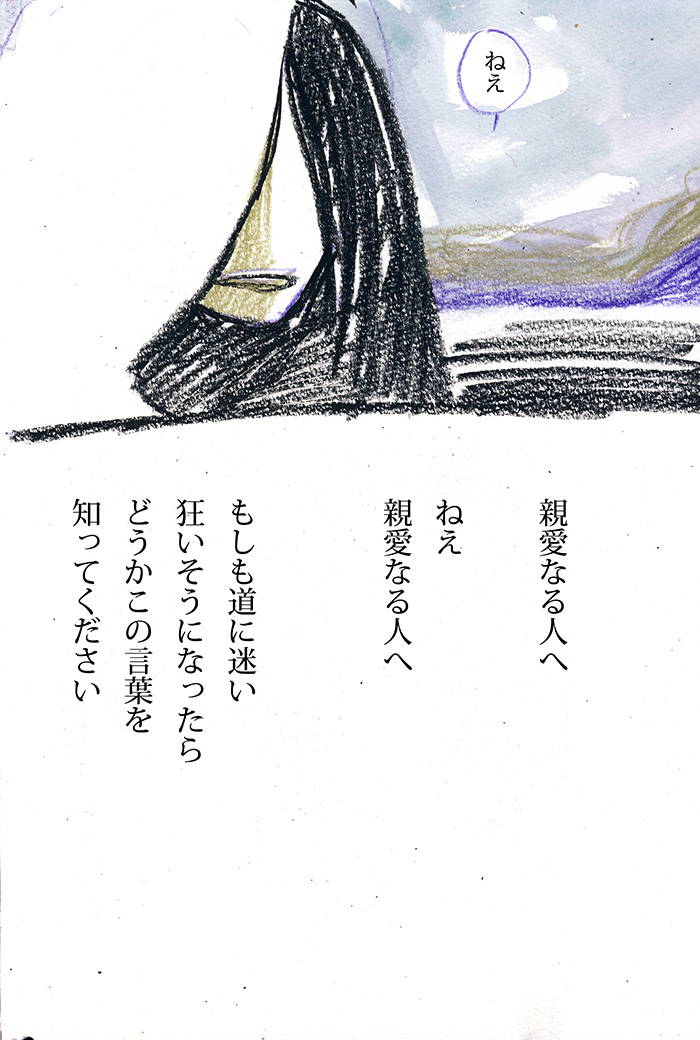 ねえ
親愛なる人へ
ねえ
親愛なる人へ
もしも道に迷い
狂いそうになったら
どうかこの言葉を
知ってください